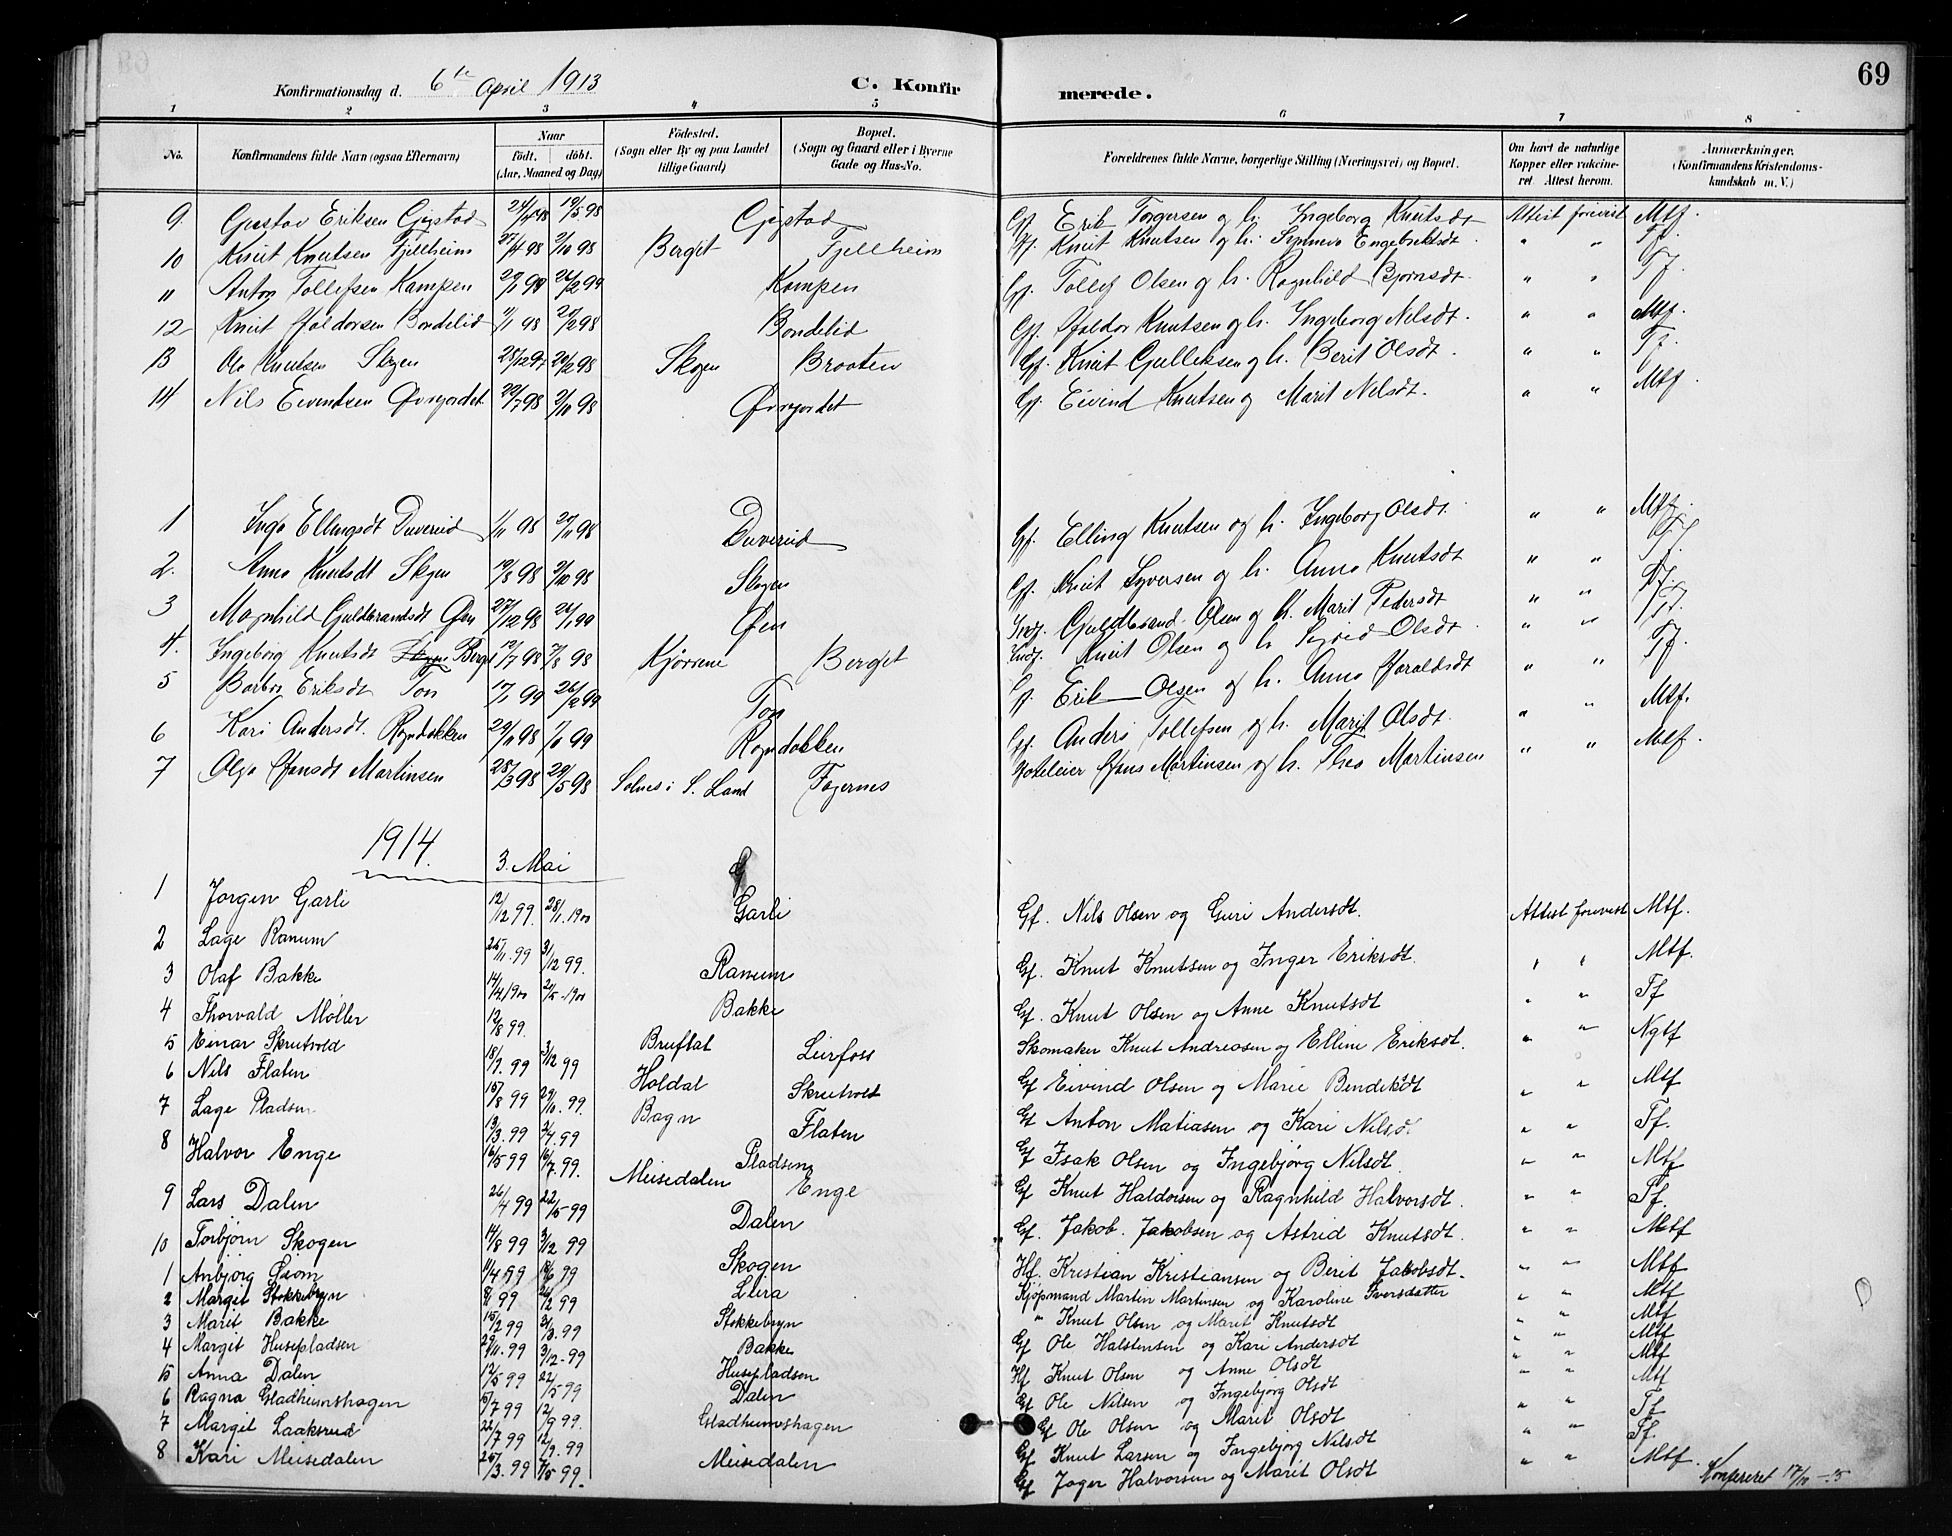 69
Konfirmationsdag d. 6te April 1913 C. Konfirmerede.
1 2 3 4 5 6 7 8
No. Konfirmandens fulde Navn (ogsaa Efternavn) Naar født. døbt. (Aar, Maaned og Dag) Fødested. (Sogn eller By og paa Landet tillige Gaard) Bopæl. (Sogn og Gaard eller i Byerne Gade og Hus-No. Forældrenes fulde Navne, borgerlige Stilling (Næringsvei) og Bopæl. Om havt de naturlige Kopper eller vakcineret. Attest herom. Anmærkninger. (Konfirmandens Kristendomskundskab m. V.)
9 Gustav Eriksen Gigstad 24/4 98 19/5 98 Gigstad Gf. Erik Torgersen og h. Ingeborg Knutsdt Attest forevist Mtf.
10 Knut Knutsen Fjellheim 27/4 98 2/10 98 Berget Fjellheim Gf. Knut Knutsen og h. Synneva Engebriktsdt. " " Tf.
11 Anton Tollefsen Kampen 29/1 99 26/2 99 Kampen Gf. Tollef Olsen og h. Ragnhild Bjørnsdt. " " Tf.
12 Knut Haldorsen Bondelid 11/1 98 20/2 98 Bondelid Gf. Haldor Knutsen og h. Ingeborg Nelsdt. " " Mtf.
13 Ole Knutsen Skogen 28/12 97 20/2 98 Skogen Braaten Gf. Knut Gulleksen og h. Berit Olsdt. " " Tf.
14 Nils Eivendsen Øvrejordet 22/7 98 2/10 98 Øvrejordet Gf. Eivind Knutsen og Marit Nelsdt. " " Mtf.
1 Inga Ellingsdt Duvereid 1/11 98 27/11 98 Duvereid Gf. Elling Knutsen og h. Ingeborg Olsdt. " " Mtf.
2. Anna Knutsdt Skogen 19/8 98 2/10 98 Skogen Gf. Knut Syversen og h. Anna Knutsdt " " Tf.
3 Magnhild Guldbrandsdt Øen 27/12 98 26/1 99 Øen Guldbrand Olsen og h. Marit Pedersdt " "
4. Ingeborg Knutsdt Berget 12/7 98 7/8 98 Kjørrene Berget Knut Olsen og h. Sigrid Olsdt. " "
5 Barbro Eriksdt Ton 17/1 99 26/2 99 Ton Gf. Erik Olsen og h. Anna Haraldsdt " " Tf.
6 Kari Andersdt. Rogndokken 29/11 98 1/11 99 Rogndokken Gf. Anders Tollefsen og h. Marit Olsdt. " " Mtf.
7 Olga Hansdt Martinsen 28/3 98 29/5 98 Solnes i S. Land Fagernes Hoteleier Hans Martinsen og h. Thea Martinsen " " Mtf.
1914. 3. Mai
1 Jørgen Garli 12/12 99. 28/1. 1900 Garli Gf. Nils Olsen og Guri Andersdt. Attest forevist Mtf.
2 Lage Ranum 25/11. 99 31/12 99. Ranum Gf. Knut Knutsen og Inger Eriksdt. " " Mtf.
3 Olaf Bakke 14/4 1900 21/5-1900 Bakke Gf. Knut Olsen og Anne Knutsdt " " Tf
4 Thorvald Møller 12/8 99. Bruflat Leirfoss Skomaker Knut Andreasen og Elline Eriksdt. " " Ngtf
5 Einar Skrutvold 18/9. 99 3/12 99 Holdal Skrutvold Gf Eivind Olsen og Marie Bendiksdt " " Mtf
6 Nils Flaten 15/8 99 29/10. 99. Bagn Flaten Gf Anton Matiasen og Kari Nilsd. " " Tf.
7 Lage Pladsen 13/3. 99 2/4. 99 Pladsen Gf Isak Olsen og Ingebjørg Nilsdt. " " Mtf
8 Halvor Enge 16/5 99 16/7. 99. Meisedalen Enge Gf Knut Haldorsen og Ragnhild Halvorsdt. " " Tf.
9 Lars Dalen 26/4 99 22/5-99 Dalen Gf. Jakob. Jakobsen og Astrid Knutsdt. " " Mtf
10 Torbjørn Skogen 14/8 99 3/12 99 Skogen Hf. Kristian Kristiansen og Berit Jakobsdt. " " Mtf
1 Anbjørg Qvam 11/4 99 18/6 99 Leira Kjøpmand Martin Martinsen og Karoline Iversdatter " " Mtf
2 Margit Stokkebryn 8/11 99 26/12 99 Stokkebryn " Knut Olsen og Marit Knutsdt " " Mtf
3 Marit Bakke 15/2 99 31/3. 99 Bakke Gf Ole Halstensen og Kari Andersdt " " Mtf
4 Margit Husepladsen 29/11-99 3/12-99 Husepladsen Hf Knut Olsen og Anne Olsdt " " Mtf
5 Anna Dalen 12/5 99 22/5-99 Dalen Gf Ole Nilsen og Ingebjørg Olsdt " " Mtf
6 Ragna Gladheimshagen 5/7 99 12/9 99. Gladheimshagen Gf Ole Olsen og Marit Olsdt " " Tf
7 Margit Laaksrud 22/7 99 12/9. 99 Gf. Knut Larsen og Ingebjørg Nilsdt " " Tf.
8 Kari Meisedalen 25/3. 99 7/5 99. Meisedalen Gf Jøger Halvorsen og Marit Olsdt " " Mtf.
Konfereret 17/10-15